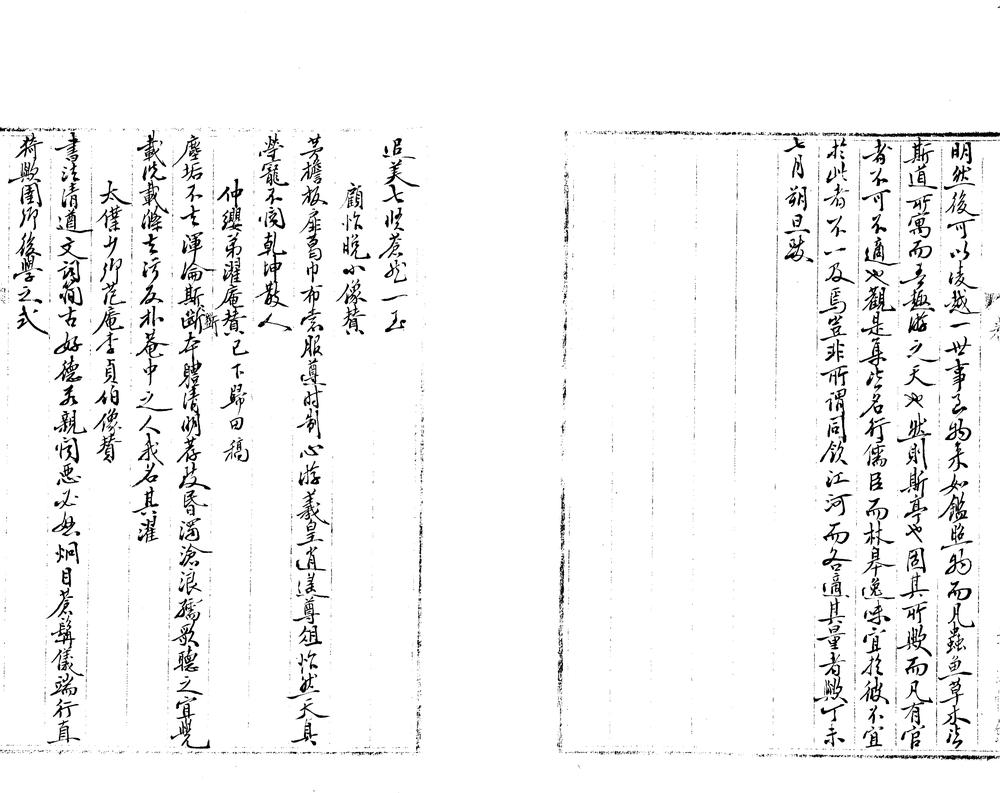 明然後可以凌越一世事至物來如鑑照物而凡蟲魚草木於
斯道所寓而吾趣游之天也然則斯亭也固其所歟而凡有官
者不可不適也觀是集諸名行儒臣而林皋逸味宜於彼不宜
於此者不一及焉豈非所謂同飲江河而各適其量者歟丁未
七月朔旦跋
追美七賢蒼然一玉
顧怡晚小像贊
茅檐板扉葛巾布裳服遵时制心游羲皇逍遥尊俎怡然天真
榮寵不聞乾坤散人
仲纓弟濯庵贊已下歸田稿
塵垢不去渾淪斯斷本體清明蔀茇昏濁滄浪孺歌聽之宜覺
斲
載洗載滌去污反朴菴中之人我名其濯
太僕少卿范庵李貞伯像贊
書法清遒文詞簡古好德若親聞惡必怒炯目蒼髯儀端行直
猗歟国卿後學之式